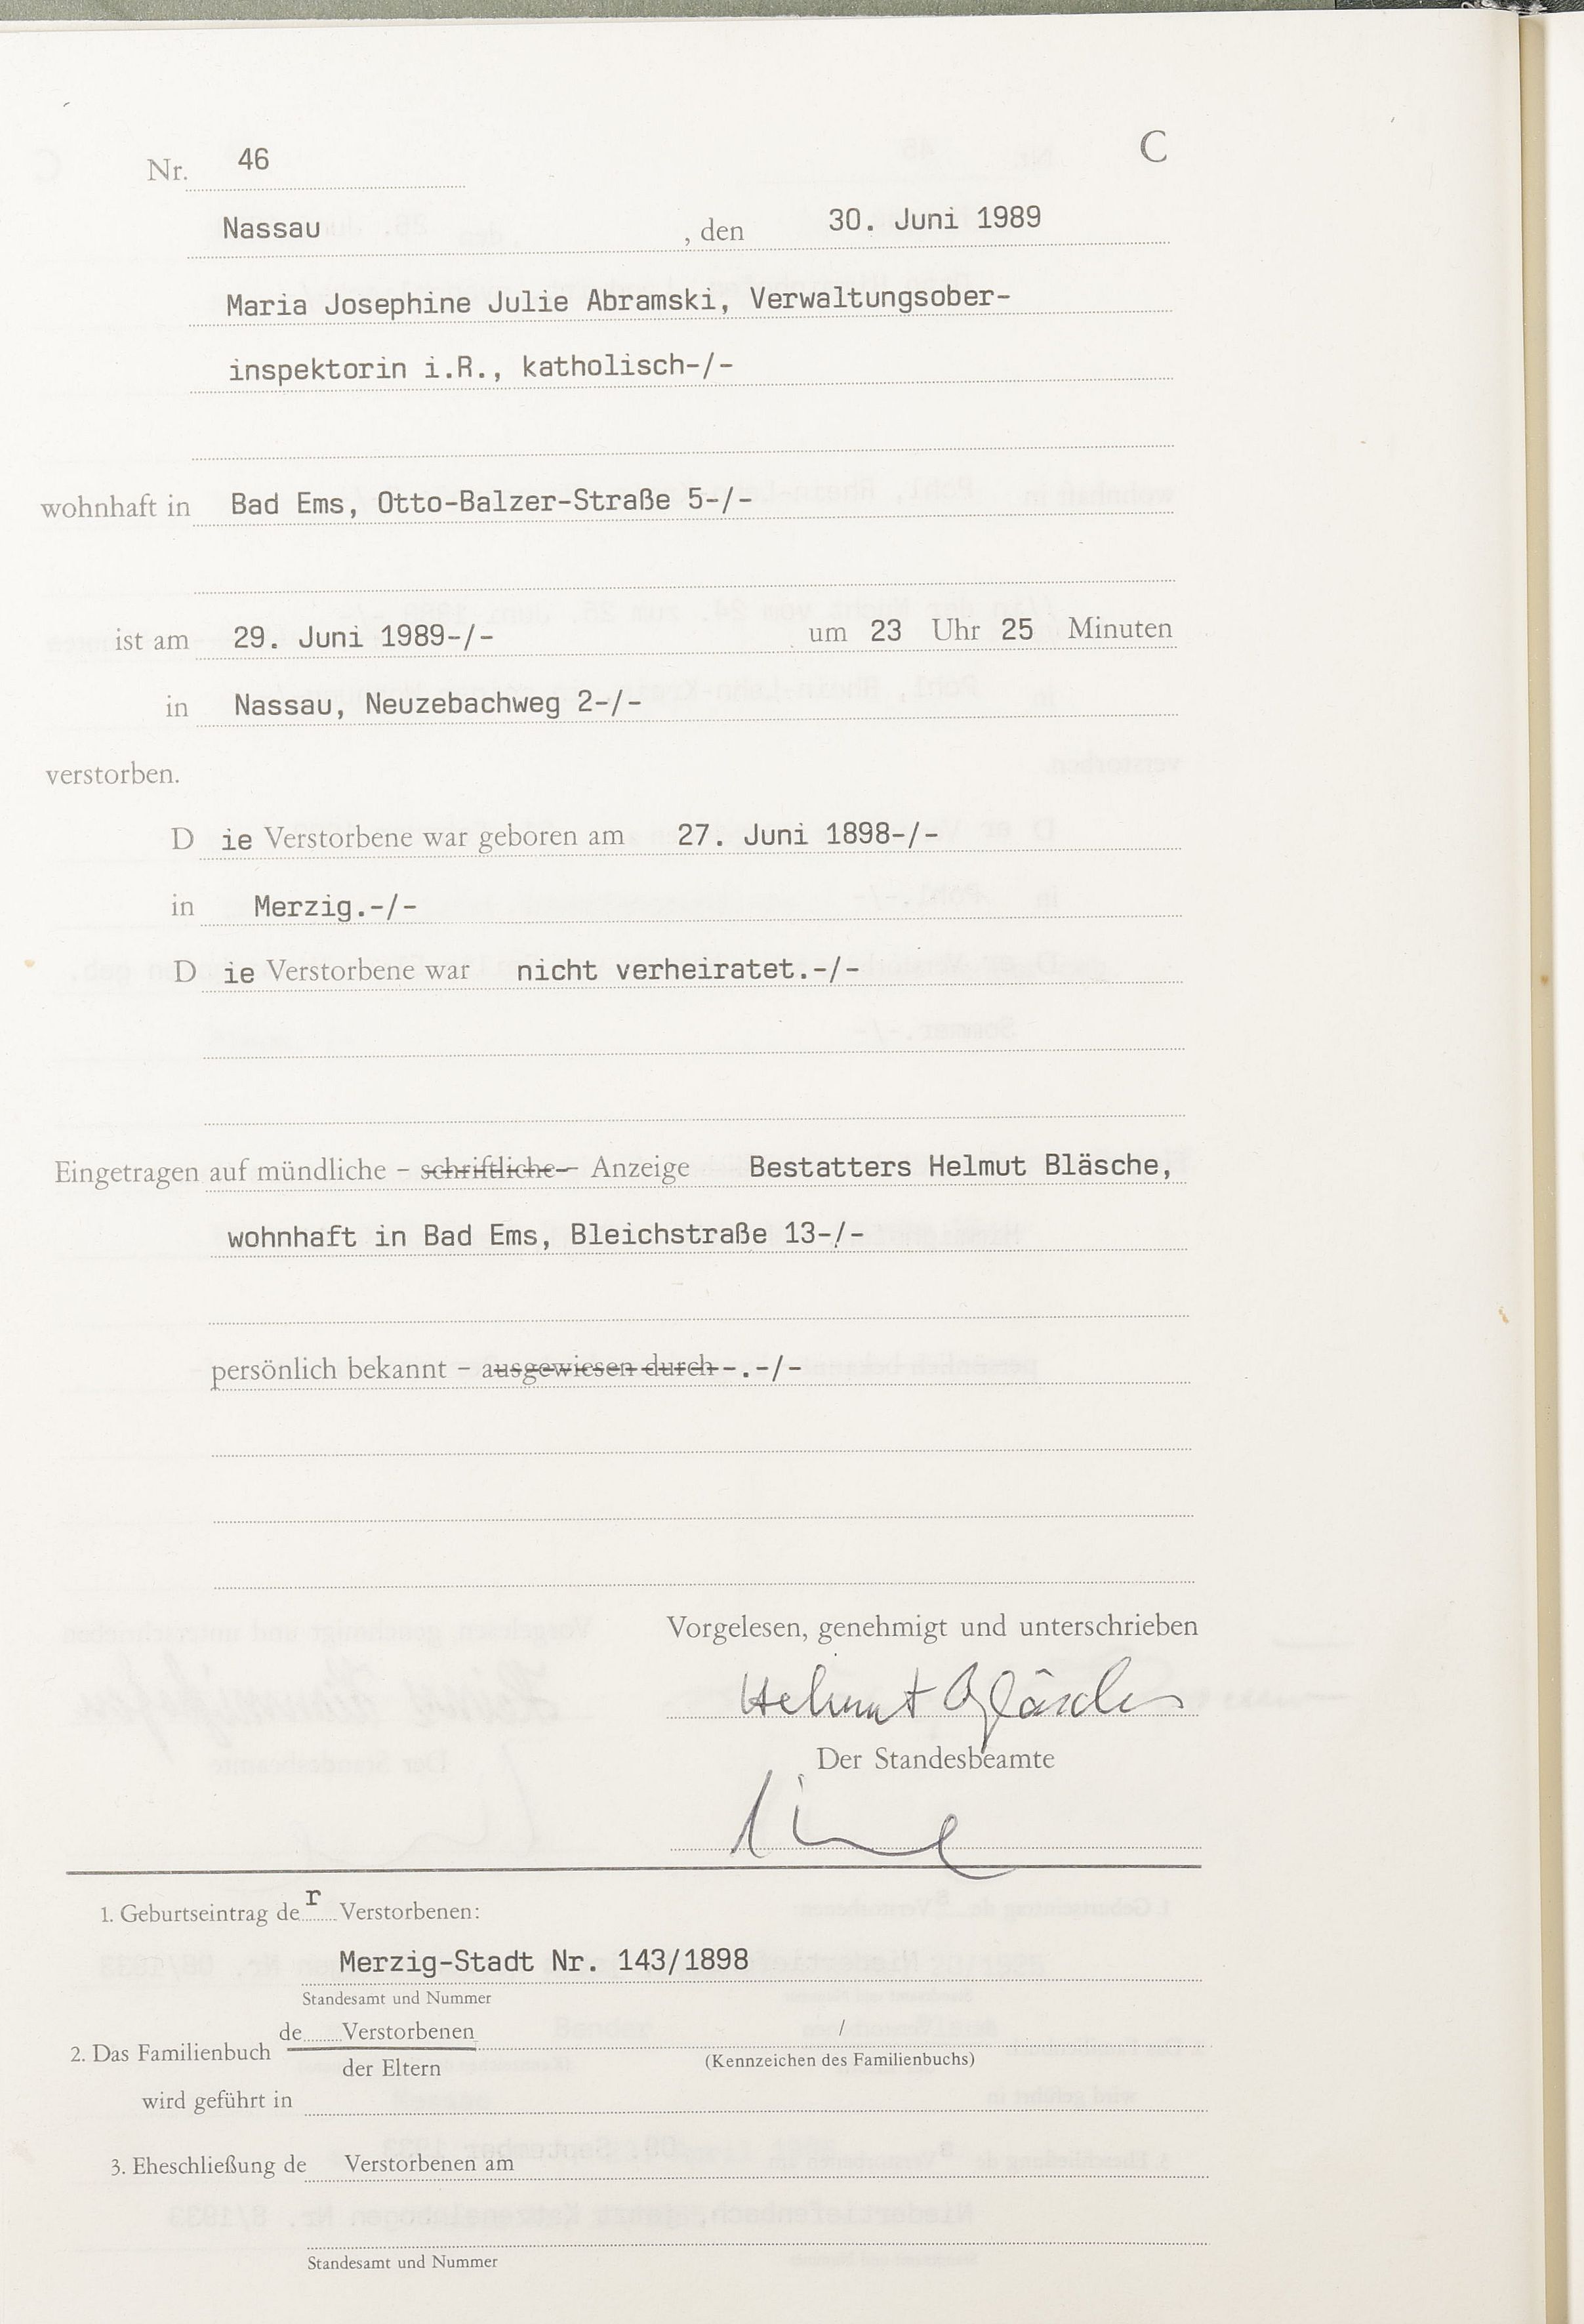 Nr. 46 C
Nassau , den 30. Juni 1989
Maria Josephine Julie Abramski, Verwaltungsober-
inspektorin i.R., katholisch-/-
wohnhaft in Bad Ems, Otto-Balzer-Straße 5-/-
ist am 29. Juni 1989-/- um 23 Uhr 25 Minuten
in Nassau, Neuzebachweg 2-/-
verstorben.
D ie Verstorbene war geboren am 27. Juni 1898-/-
in Merzig.-/-
D ie Verstorbene war nicht verheiratet.-/-
Eingetragen auf mündliche – schriftliche – Anzeige Bestatters Helmut Bläsche,
wohnhaft in Bad Ems, Bleichstraße 13-/-
persönlich bekannt – ausgewiesen durch -.-/-
Vorgelesen, genehmigt und unterschrieben
Helmut Bläsche
Der Standesbeamte
1. Geburtseintrag der Verstorbenen:
Merzig-Stadt Nr. 143/1898
Standesamt und Nummer
de Verstorbenen /
2. Das Familienbuch
der Eltern (Kennzeichen des Familienbuchs)
wird geführt in
3. Eheschließung de Verstorbenen am
Standesamt und Nummer